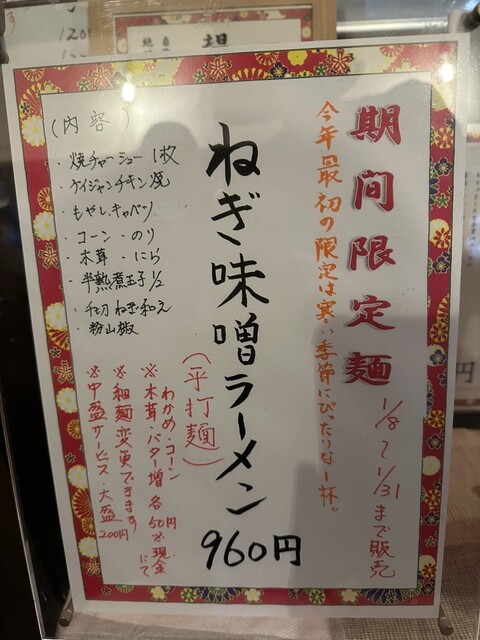 期間限定麺
1/8〜1/31まで販売
今年最初の限定は寒い季節にぴったりな一杯。
ねぎ味噌ラーメン
(平打麺)
960円
(内容)
・焼チャーシュー 1枚
・ケイジャンチキン焼
・もやし.キャベツ
・コーン・のり
・木茸・にら
・半熟煮玉子1/2
・千切ねぎ和え
・粉山椒
わかめ・コーン
※木茸・バター増各50円現金にて
※細麺変更できます
※中盛サービス・大盛200円
120